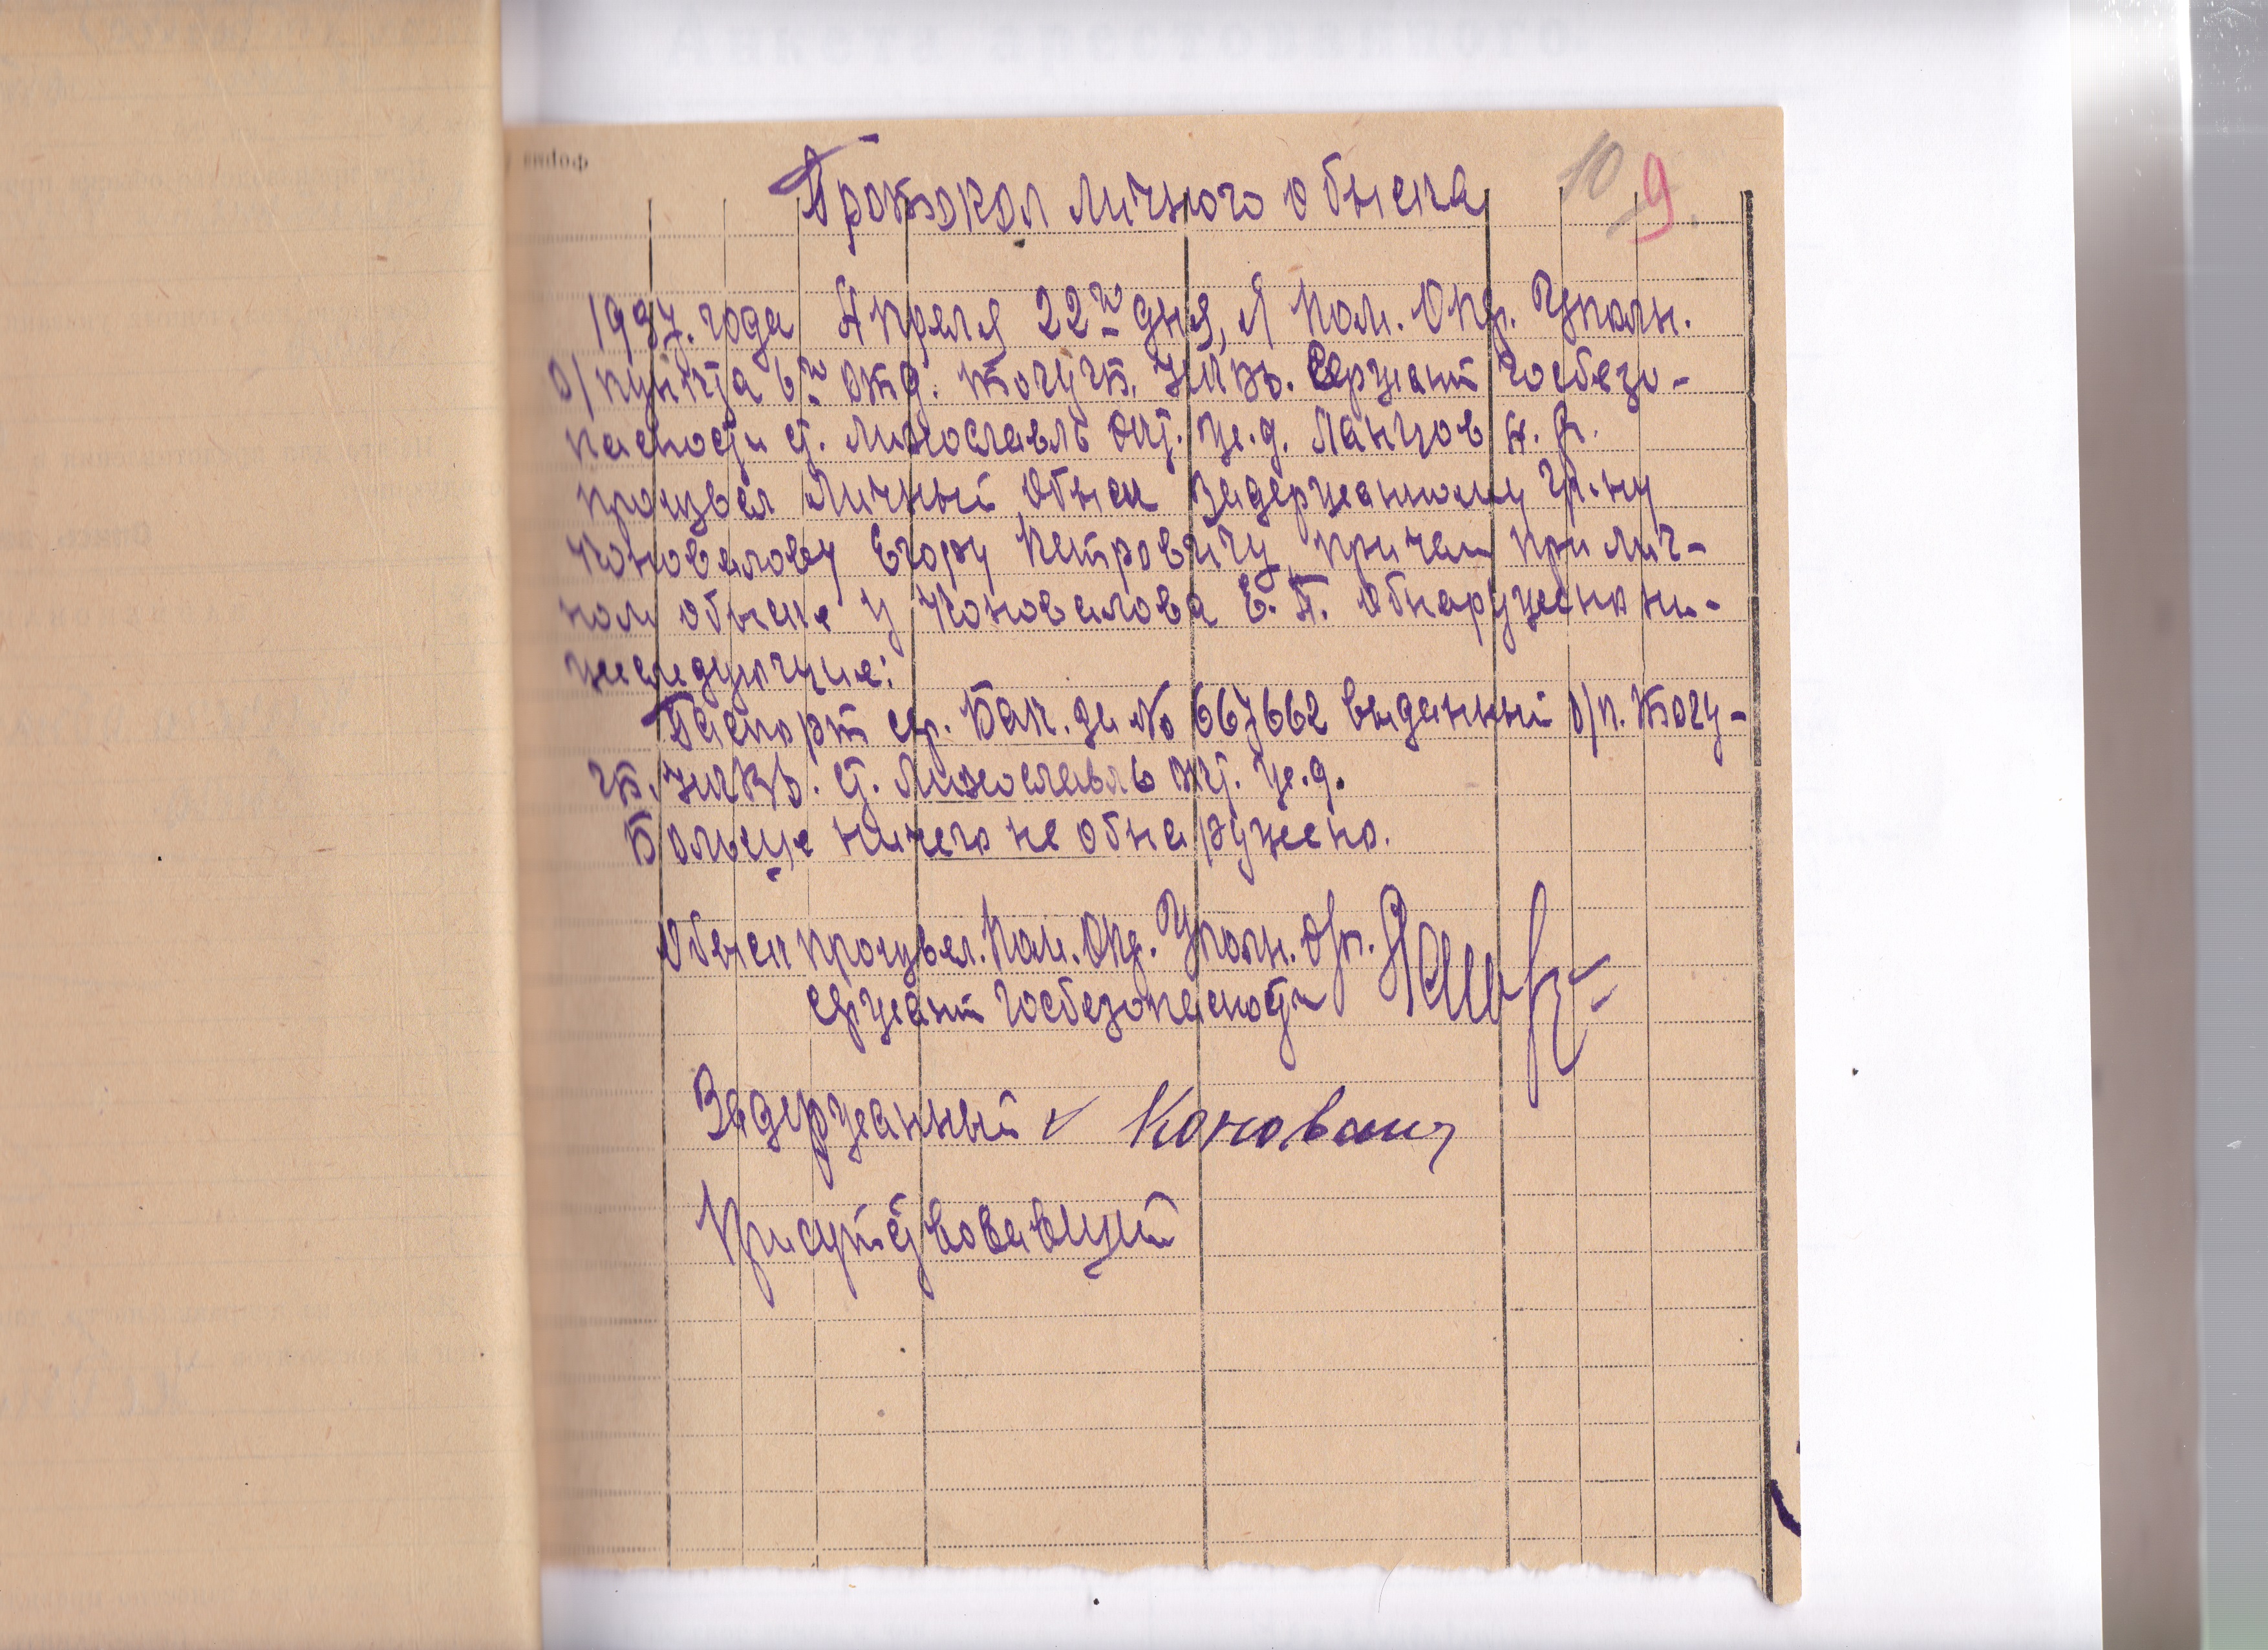 форма
10 9
Протокол личного обыска
1937. года Апреля 22го дня, Я Пом. Опер. Уполн.
О/пункта 6го отд. ТОГУГБ. УНКВД. Сержант Госбезо-
пасности ст. Лихославль Окт. ж.д. Ланцов А.
произвел Личный Обыск Задержанному гр-ну
Коновалову Егору Петровичу, причем при лич-
ном обыске у Коновалова Е. П. Обнаружено ни-
жеследующие:
Паспорт сер. за № 667662 выданный О/п. ТОГУ-
ГБ. УНКВД. ст. Лихославль окт. ж.д.
Больше ничего не обнаружено.
Обыск произвел. Пом. Опер. Уполн. О/п.
сержант Госбезопасности
Задержанный Коновалов
Присутствовавший